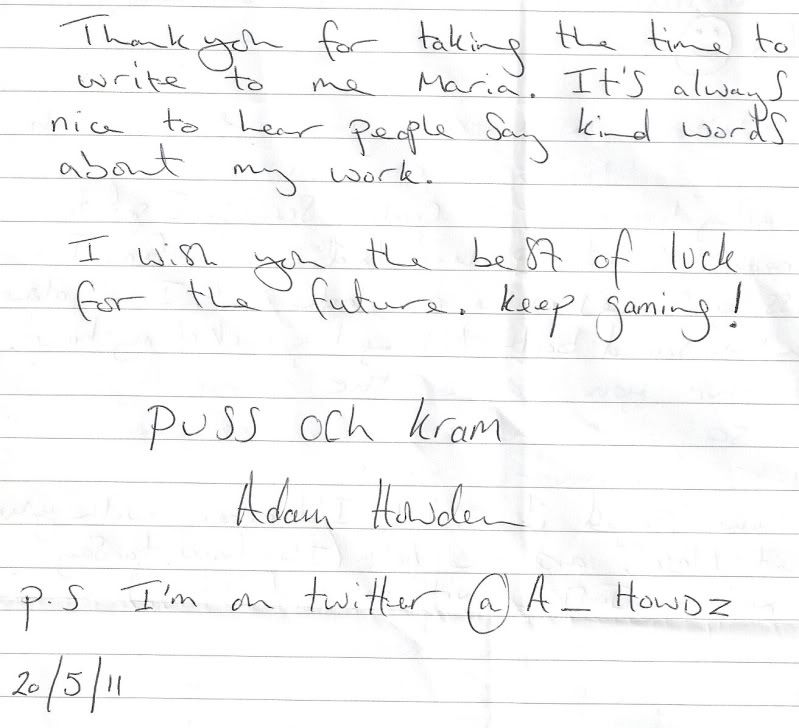 Thank you for taking the time to
write to me Maria. It's always
nice to hear people say kind words
about my work.
I wish you the best of luck
for the future. keep gaming!
puss och kram
Adam Howden
p.s I'm on twitter @A_HOWDZ
20/5/11